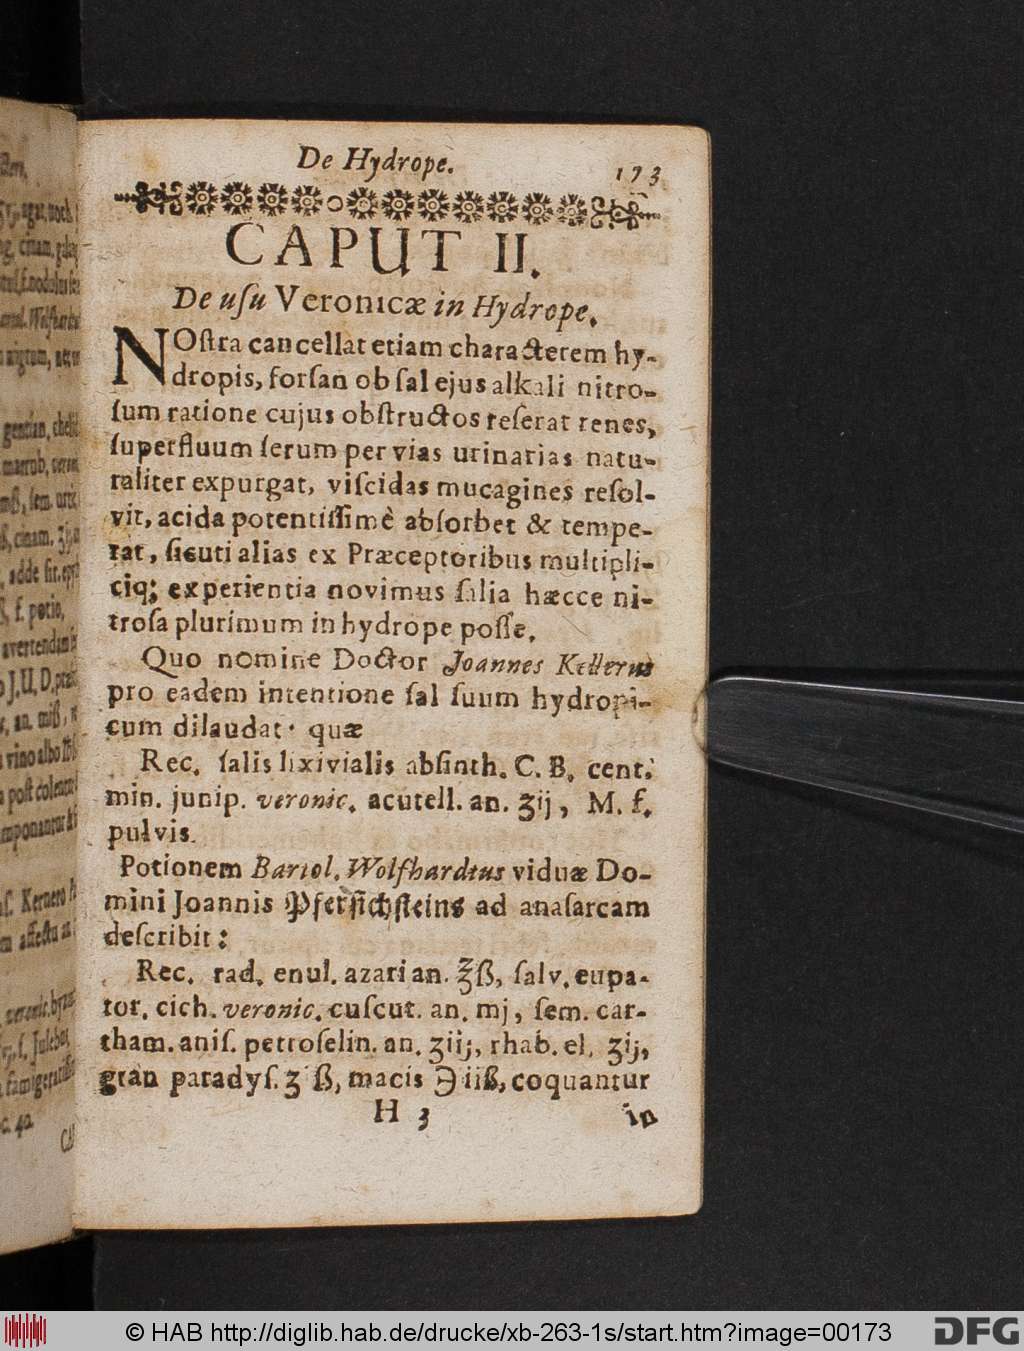 De Hydrope.
173
CAPUT II.
De uſu Veronicæ in Hydrope.
NOſtra cancellat etiam characterem hy-
dropis, forſan ob ſal ejus alkali nitro-
ſum ratione cujus obſtructos reſerat renes,
ſuperfluum ſerum per vias urinarias natu-
raliter expurgat, viſcidas mucagines reſol-
vit, acida potentiſſimè abſorbet & tempe-
rat, ſicuti alias ex Præceptoribus multipli-
ciq; experientia novimus ſalia hæcce ni-
troſa plurimum in hydrope poſſe.
Quo nomine Doctor Joannes Kellerus
pro eadem intentione ſal ſuum hydropi-
cum dilaudat· quæ
Rec. ſalis lixivialis abſinth. C. B. cent.
min. junip. veronic. acutell. an. ʒij, M. f.
pulvis.
Potionem Bartol. Wolfhardtus viduæ Do-
mini Joannis Pferſichſteins ad anaſarcam
deſcribit:
Rec. rad. enul. azari an. ℥ß, ſalv. eupa-
tor. cich. veronic. cuſcut. an. mj, ſem. car-
tham. aniſ. petroſelin. an. ʒiij, rhab. el. ʒij,
gran paradyſ. ʒ ß, macis ℈iiß, coquantur
H 3
in
© HAB http://diglib.hab.de/drucke/xb-263-1s/start.htm?image=00173
DFG